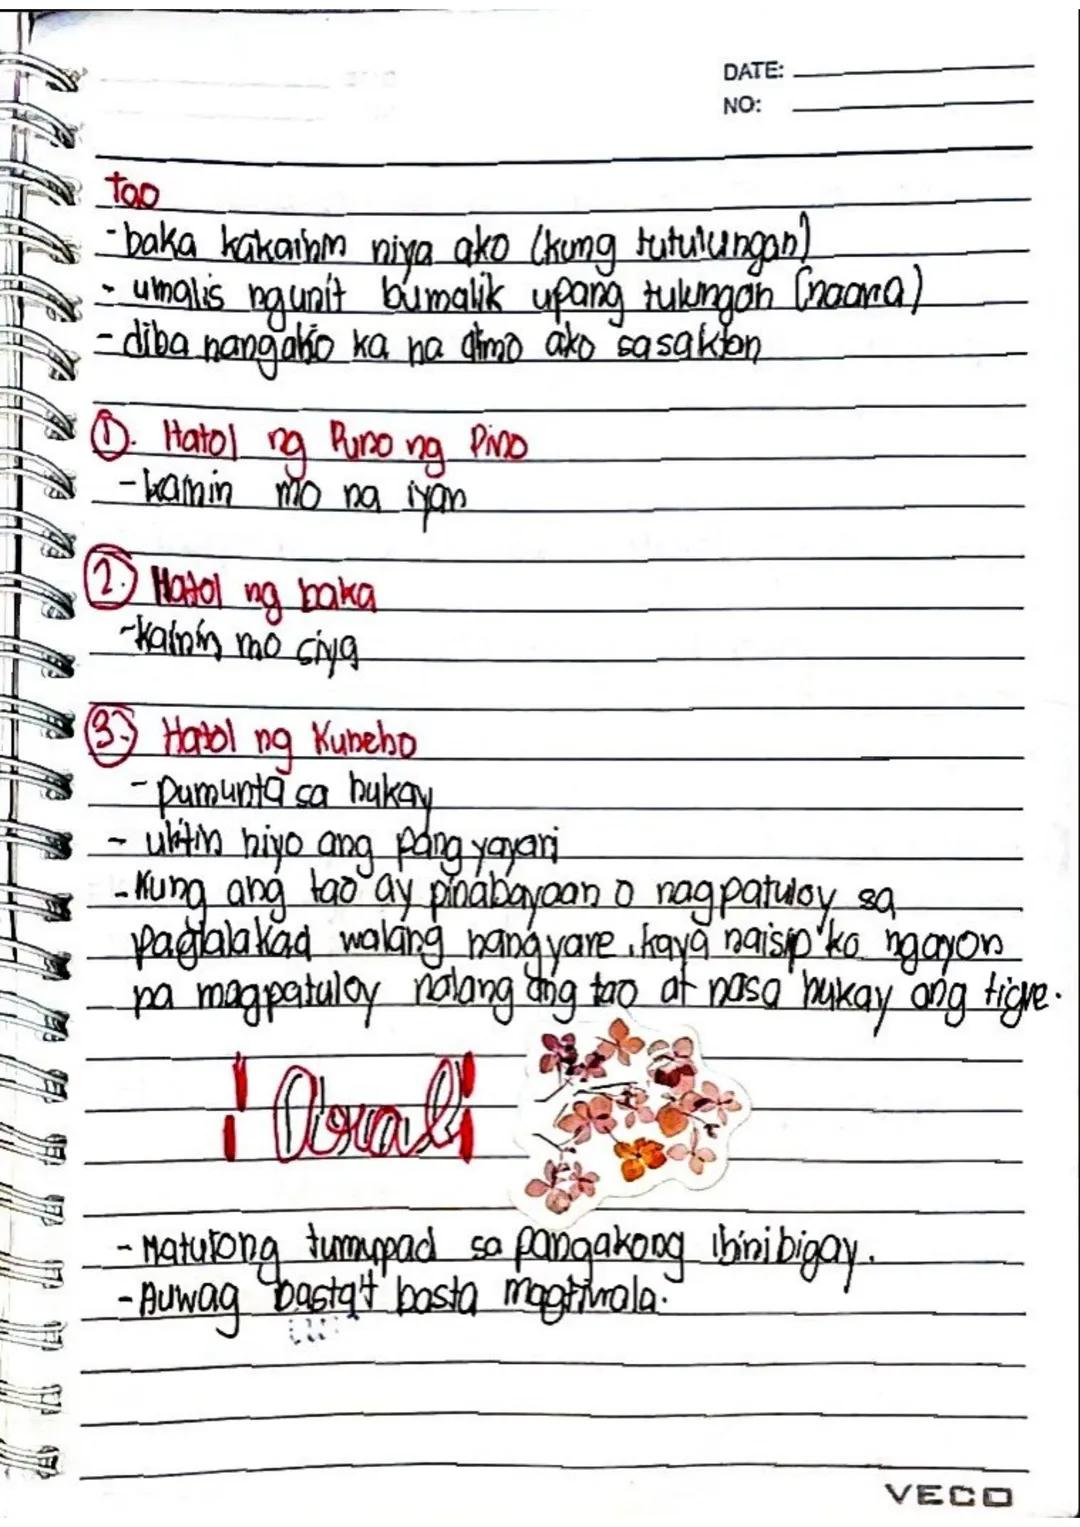 DATE:
NO:
tao
-baka kakainin niya ako (kung tutulungan)
- umalis ngunit bumalik upang tulungan (naawa)
- diba nangako ka na dimo ako sasaktan
1. Hatol ng Puno ng Pino
-kainin mo na iyan
2. Hatol ng baka
-kainin mo siya
3. Hatol ng Kuneho
- pumunta sa hukay
- ulitin niyo ang pangyayari
- Kung ang tao ay pinabayaan o nagpatuloy sa
paglalakad walang nangyare, kaya naisip ko ngayon
na magpatuloy nalang ang tao at nasa hukay ang tigre.
Aral
- Matutong tumuppad sa pangakong ibinibigay.
- Auwag basta't basta magtiwala.
VECO